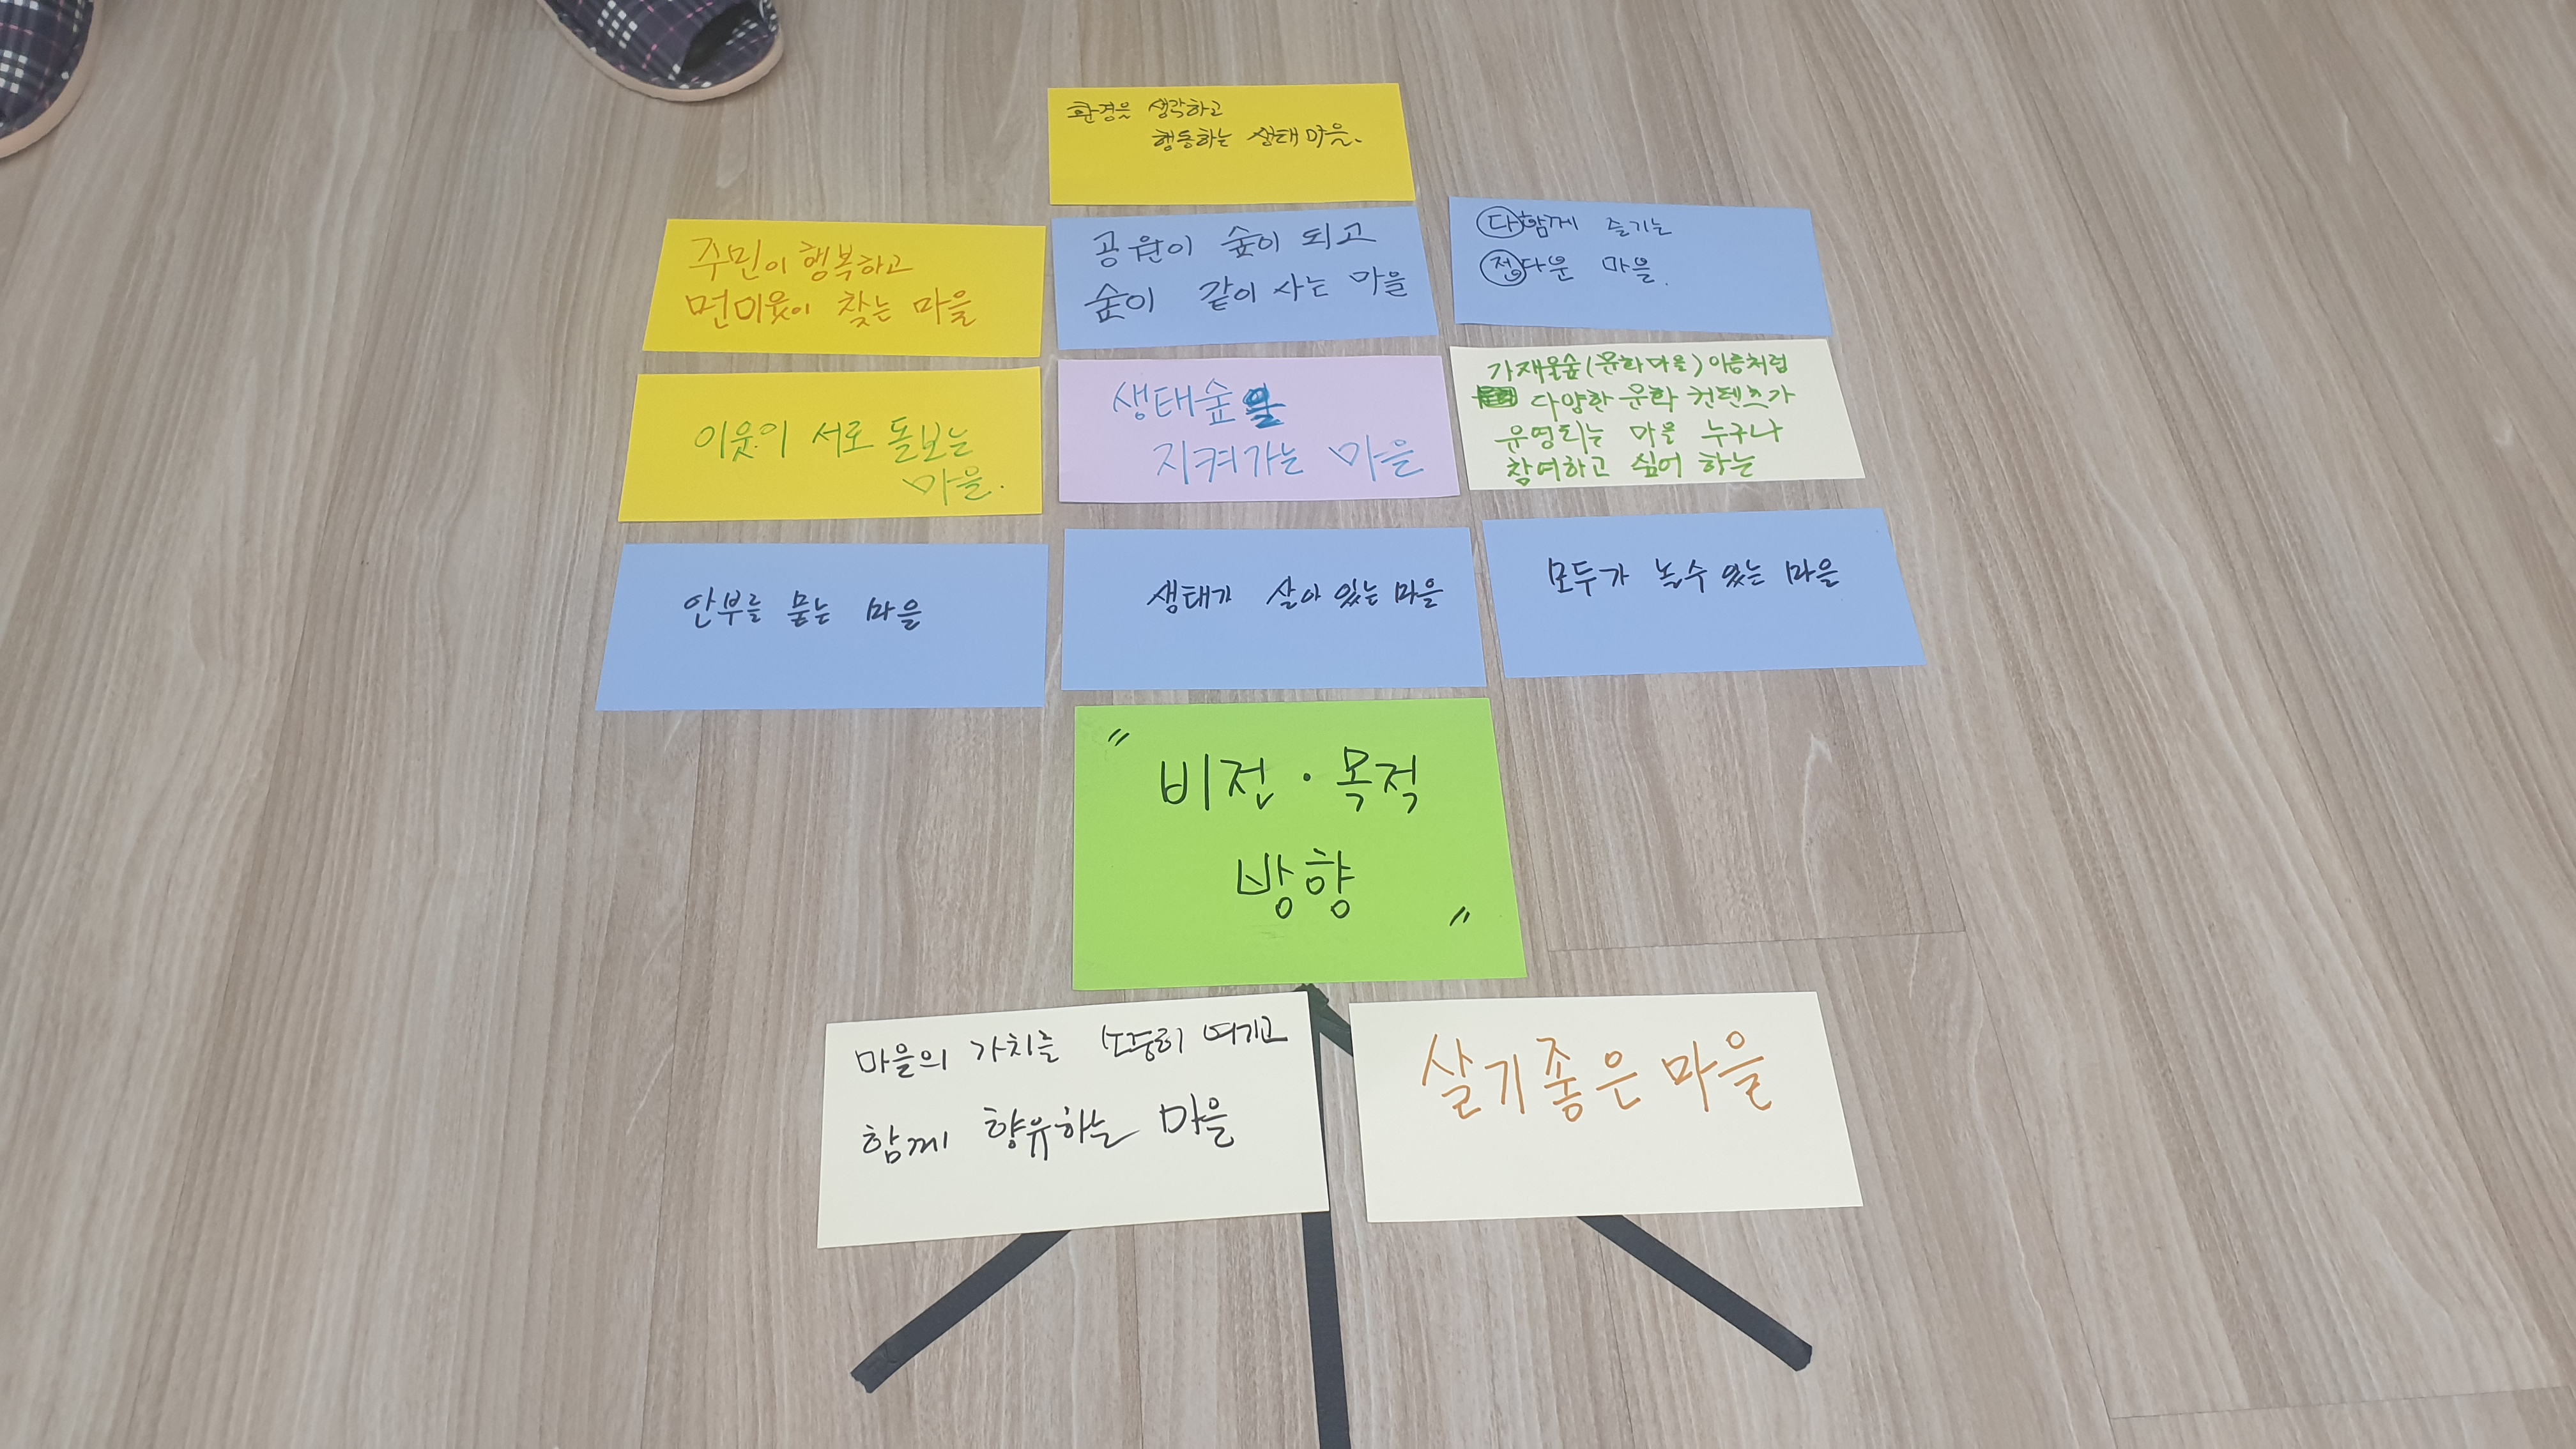 환경을 생각하고
행동하는 생태마을.
주민이 행복하고
먼 이웃이 찾는 마을
공원이 숲이 되고
숲이 같이 사는 마을
다함께 즐기는
정다운 마을.
이웃이 서로 돌보는
마을.
생태숲을
지켜가는 마을
가재울숲(문화마을)이름처럼
다양한 문화 컨텐츠가
운영되는 마을 누구나
참여하고 싶어 하는
안부를 묻는 마을
생태가 살아 있는 마을
모두가 놀 수 있는 마을
"비전·목적
방향"
마을의 가치를 소중히 여기고
함께 향유하는 마을
살기좋은마을